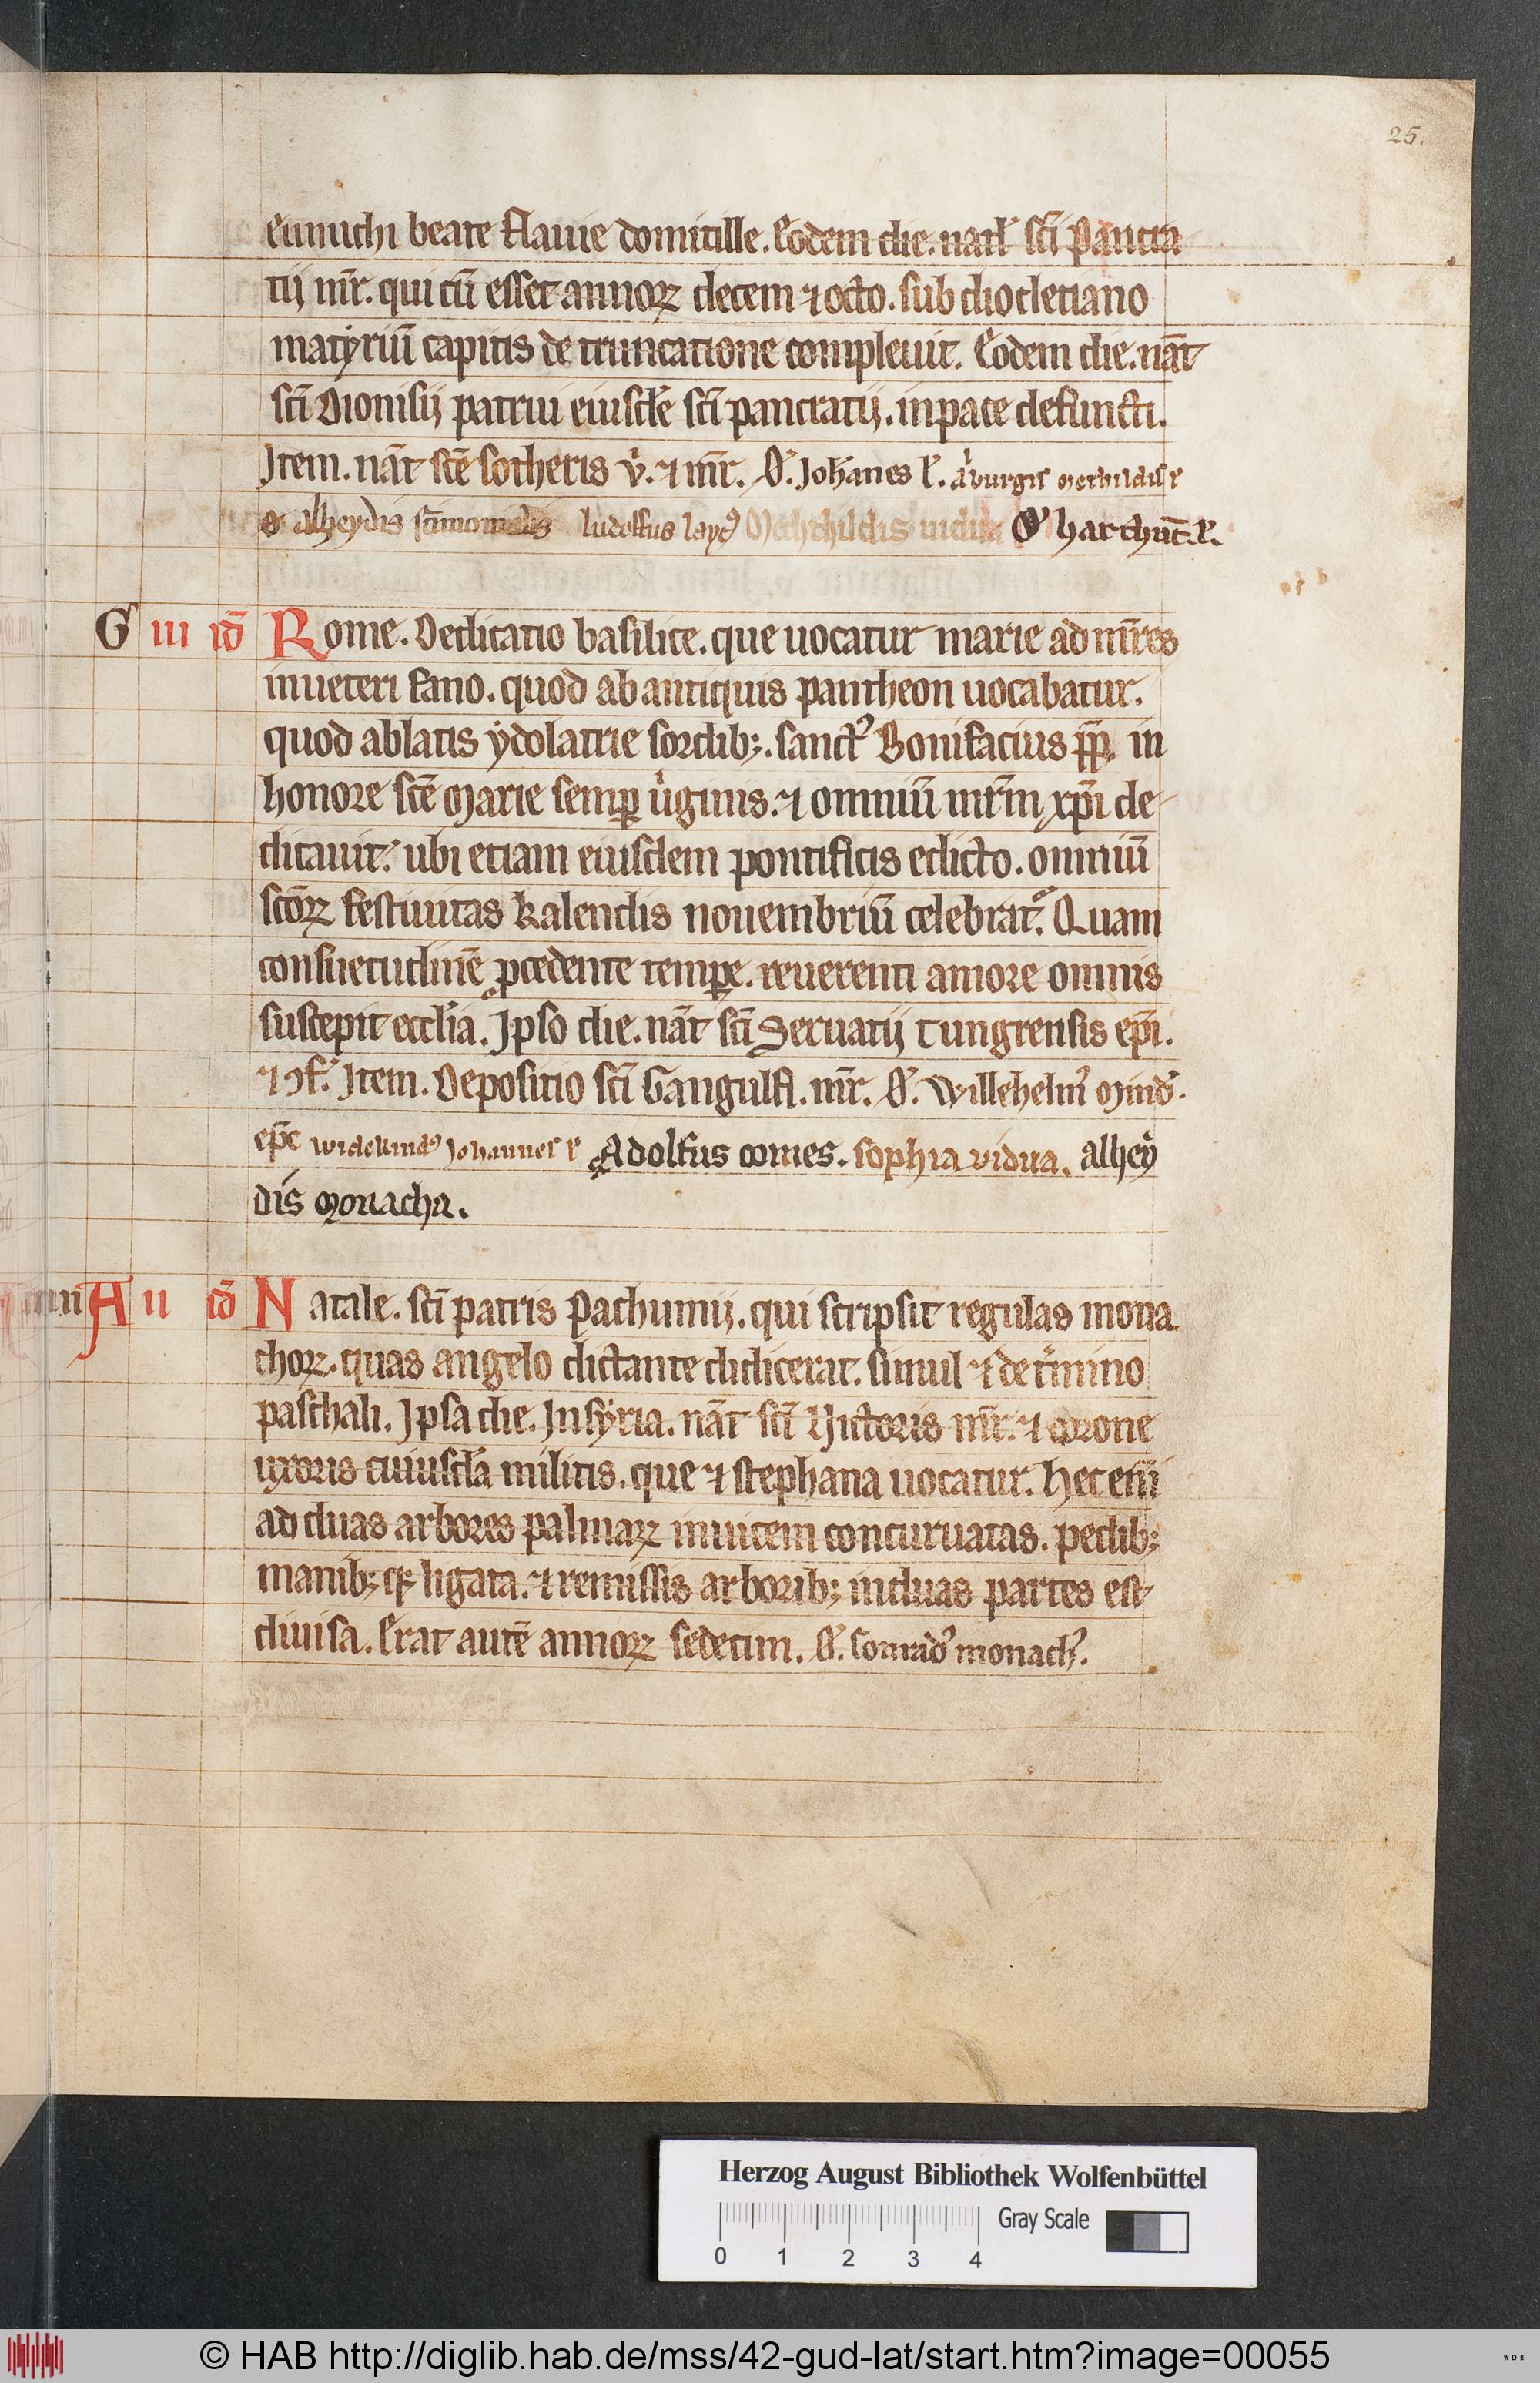 25.
eunuchi beate flauie domitille. Eodem die. natł sc̄i pancra
tij mr̄. qui cū esset annoꝝ decem ⁊ octo. sub diocletiano
matẏriū capitis de truncatione compleuit. Eodem die. nāt
sc̄i Dionisij patrui eiusdē sc̄i pancratij. in pace defuncti.
Item. nāt sc̄e sotheris v̇. ⁊ mr̄. O᷎. Joh̄anes l᷎.
alheydis sc̄imonialis ludolfus layc᷒ Mechthildis uidua O᷎ harthūc. l᷎.
G iii id̄ Rome. Dedicatio basilice. que uocatur marie ad mr̄es
in ueteri fano. quod ab antiquis pantheon uocabatur.
quod ablatis ẏdolatrie sordib;. sanct᷒ Bonifacius p̄p̄. in
honore sc̄e Marie semꝑ u̇ginis. ⁊ omniū mr̄m xp̄i de
dicauit. ubi etiam eiusdem pontificis edicto. omniū
sc̄oꝝ festiuitas kalendis nouembriū celebrat᷑. Quam
consuetudinē ꝓcedente tempe. reuerenti amore omnis
suscepit eccl̄ia. Ipso die. nāt sc̄i Seruatij Tungrensis ep̄i.
⁊ ꝯf᷎. Item. Depositio sc̄i Gangulfi. mr̄. O᷎. Willehelm᷒ Mind᷎.
ep̄c widekind᷒ Johannes l᷎ Adolfus comes. sophia vidua. alheẏ
dis monacha.
A ii id̄ Natale. sc̄i patris Pachumij. qui scripsit regulas mona
choꝝ. quas angelo dictante didicerat. simul ⁊ de t᷎mino
paschali. Ipsa die. In sẏria. nāt sc̄i Victoris mr̄. ⁊ corone
uxoris cuiusdā militis. que ⁊ stephana uocatur. Hec enī
ad duas arbores palmaꝝ inuicem concuruatas. pedib;
manib; qꝫ ligata. ⁊ remissis arborib; in duas partes est
diuisa. Erat autē annoꝝ sedecim. O᷎. Conrad᷒ monach᷒.
Herzog August Bibliothek Wolfenbüttel
0 1 2 3 4 Gray Scale
© HAB http://diglib.hab.de/mss/42-gud-lat/start.htm?image=00055
WDB